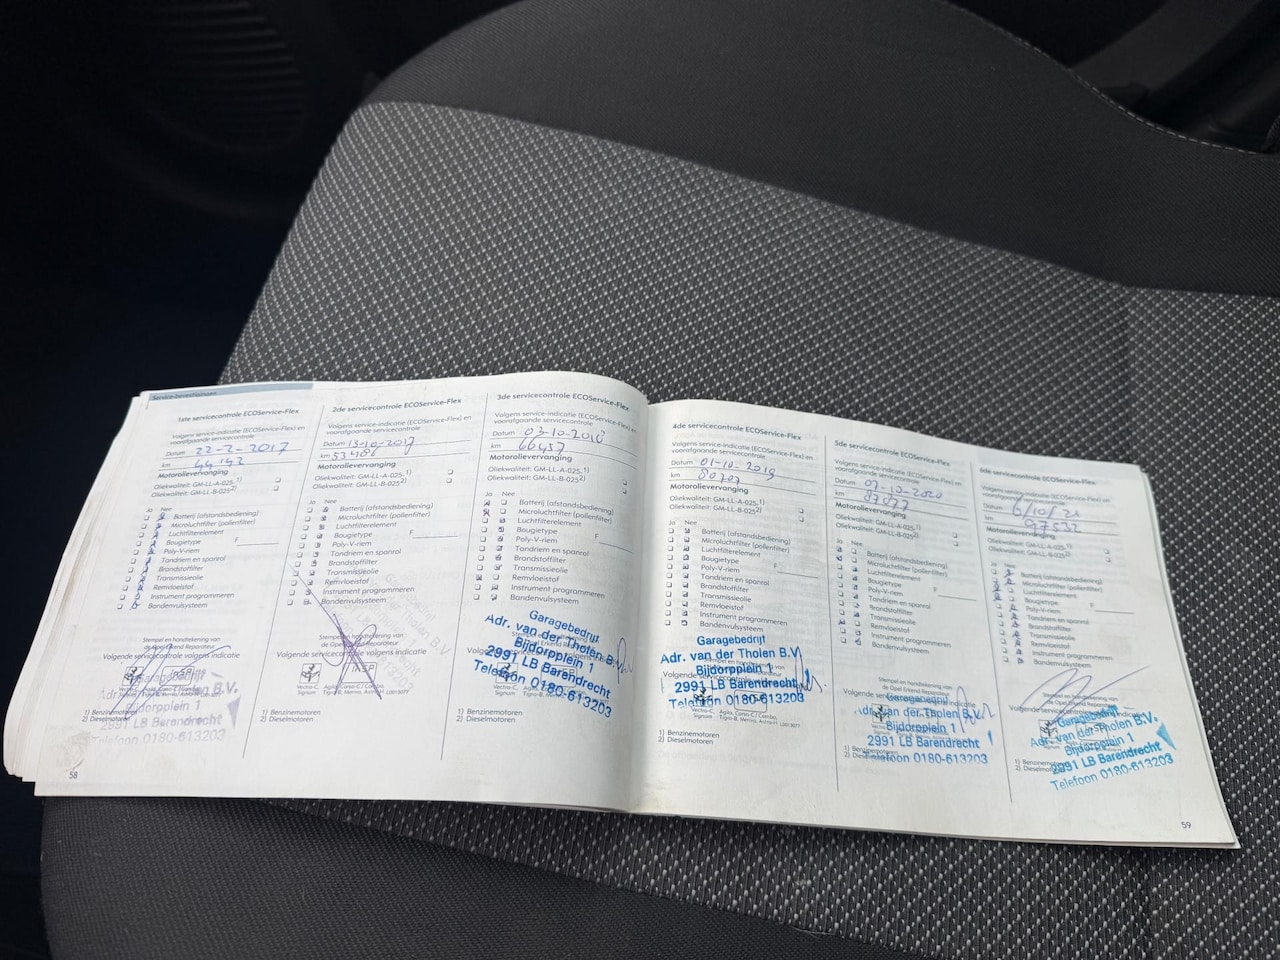 Service-bevestigingen
1ste servicecontrole ECOService-Flex
Volgens service-indicatie (ECOService-Flex) en
voorafgaande servicecontrole
Datum 22-2-2017
km 44142
Motorolievervanging
Oliekwaliteit: GM-LL-A-025 1)
Oliekwaliteit: GM-LL-B-025 2)
Ja Nee
Batterij (afstandsbediening)
Microluchtfilter (pollenfilter)
Luchtfilterelement
Bougietype F
Poly-V-riem
Tandriem en spanrol
Brandstoffilter
Transmissieolie
Remvloeistof
Instrument programmeren
Bandenvulsysteem
Stempel en handtekening van
de Opel Erkend Reparateur
Volgende servicecontrole volgens indicatie
Garagebedrijf
Adr. van der Tholen B.V.
Bijdorpplein 1
2991 LB Barendrecht
Telefoon 0180-613203
1) Benzinemotoren
2) Dieselmotoren
58
2de servicecontrole ECOService-Flex
Volgens service-indicatie (ECOService-Flex) en
voorafgaande servicecontrole
Datum 13-10-2017
km 53486
Motorolievervanging
Oliekwaliteit: GM-LL-A-025 1)
Oliekwaliteit: GM-LL-B-025 2)
Ja Nee
Batterij (afstandsbediening)
Microluchtfilter (pollenfilter)
Luchtfilterelement
Bougietype F
Poly-V-riem
Tandriem en spanrol
Brandstoffilter
Transmissieolie
Remvloeistof
Instrument programmeren
Bandenvulsysteem
Stempel en handtekening van
de Opel Erkend Reparateur
Volgende servicecontrole volgens indicatie
INSP
Vectra-C, Agila, Corsa-C / Combo,
Signum Tigra-B, Meriva, Astra-H
1) Benzinemotoren
2) Dieselmotoren
3de servicecontrole ECOService-Flex
Volgens service-indicatie (ECOService-Flex) en
voorafgaande servicecontrole
Datum 03-10-2018
km 66457
Motorolievervanging
Oliekwaliteit: GM-LL-A-025 1)
Oliekwaliteit: GM-LL-B-025 2)
Ja Nee
Batterij (afstandsbediening)
Microluchtfilter (pollenfilter)
Luchtfilterelement
Bougietype F
Poly-V-riem
Tandriem en spanrol
Brandstoffilter
Transmissieolie
Remvloeistof
Instrument programmeren
Bandenvulsysteem
Garagebedrijf
Adr. van der Tholen B.V.
Bijdorpplein 1
2991 LB Barendrecht
Telefoon 0180-613203
1) Benzinemotoren
2) Dieselmotoren
4de servicecontrole ECOService-Flex
Volgens service-indicatie (ECOService-Flex) en
voorafgaande servicecontrole
Datum 01-10-2019
km 80707
Motorolievervanging
Oliekwaliteit: GM-LL-A-025 1)
Oliekwaliteit: GM-LL-B-025 2)
Ja Nee
Batterij (afstandsbediening)
Microluchtfilter (pollenfilter)
Luchtfilterelement
Bougietype F
Poly-V-riem
Tandriem en spanrol
Brandstoffilter
Transmissieolie
Remvloeistof
Instrument programmeren
Bandenvulsysteem
Garagebedrijf
Adr. van der Tholen B.V.
Bijdorpplein 1
2991 LB Barendrecht
Telefoon 0180-613203
1) Benzinemotoren
2) Dieselmotoren
5de servicecontrole ECOService-Flex
Volgens service-indicatie (ECOService-Flex) en
voorafgaande servicecontrole
Datum 07-10-2020
km 87077
Motorolievervanging
Oliekwaliteit: GM-LL-A-025 1)
Oliekwaliteit: GM-LL-B-025 2)
Ja Nee
Batterij (afstandsbediening)
Microluchtfilter (pollenfilter)
Luchtfilterelement
Bougietype F
Poly-V-riem
Tandriem en spanrol
Brandstoffilter
Transmissieolie
Remvloeistof
Instrument programmeren
Bandenvulsysteem
Garagebedrijf
Adr. van der Tholen B.V.
Bijdorpplein 1
2991 LB Barendrecht
Telefoon 0180-613203
1) Benzinemotoren
2) Dieselmotoren
6de servicecontrole ECOService-Flex
Volgens service-indicatie (ECOService-Flex) en
voorafgaande servicecontrole
Datum 6/10/21
km 97522
Motorolievervanging
Oliekwaliteit: GM-LL-A-025 1)
Oliekwaliteit: GM-LL-B-025 2)
Ja Nee
Batterij (afstandsbediening)
Microluchtfilter (pollenfilter)
Luchtfilterelement
Bougietype F
Poly-V-riem
Tandriem en spanrol
Brandstoffilter
Transmissieolie
Remvloeistof
Instrument programmeren
Bandenvulsysteem
Stempel en handtekening van
de Opel Erkend Reparateur
Garagebedrijf
Adr. van der Tholen B.V.
Bijdorpplein 1
2991 LB Barendrecht
Telefoon 0180-613203
1) Benzinemotoren
2) Dieselmotoren
59